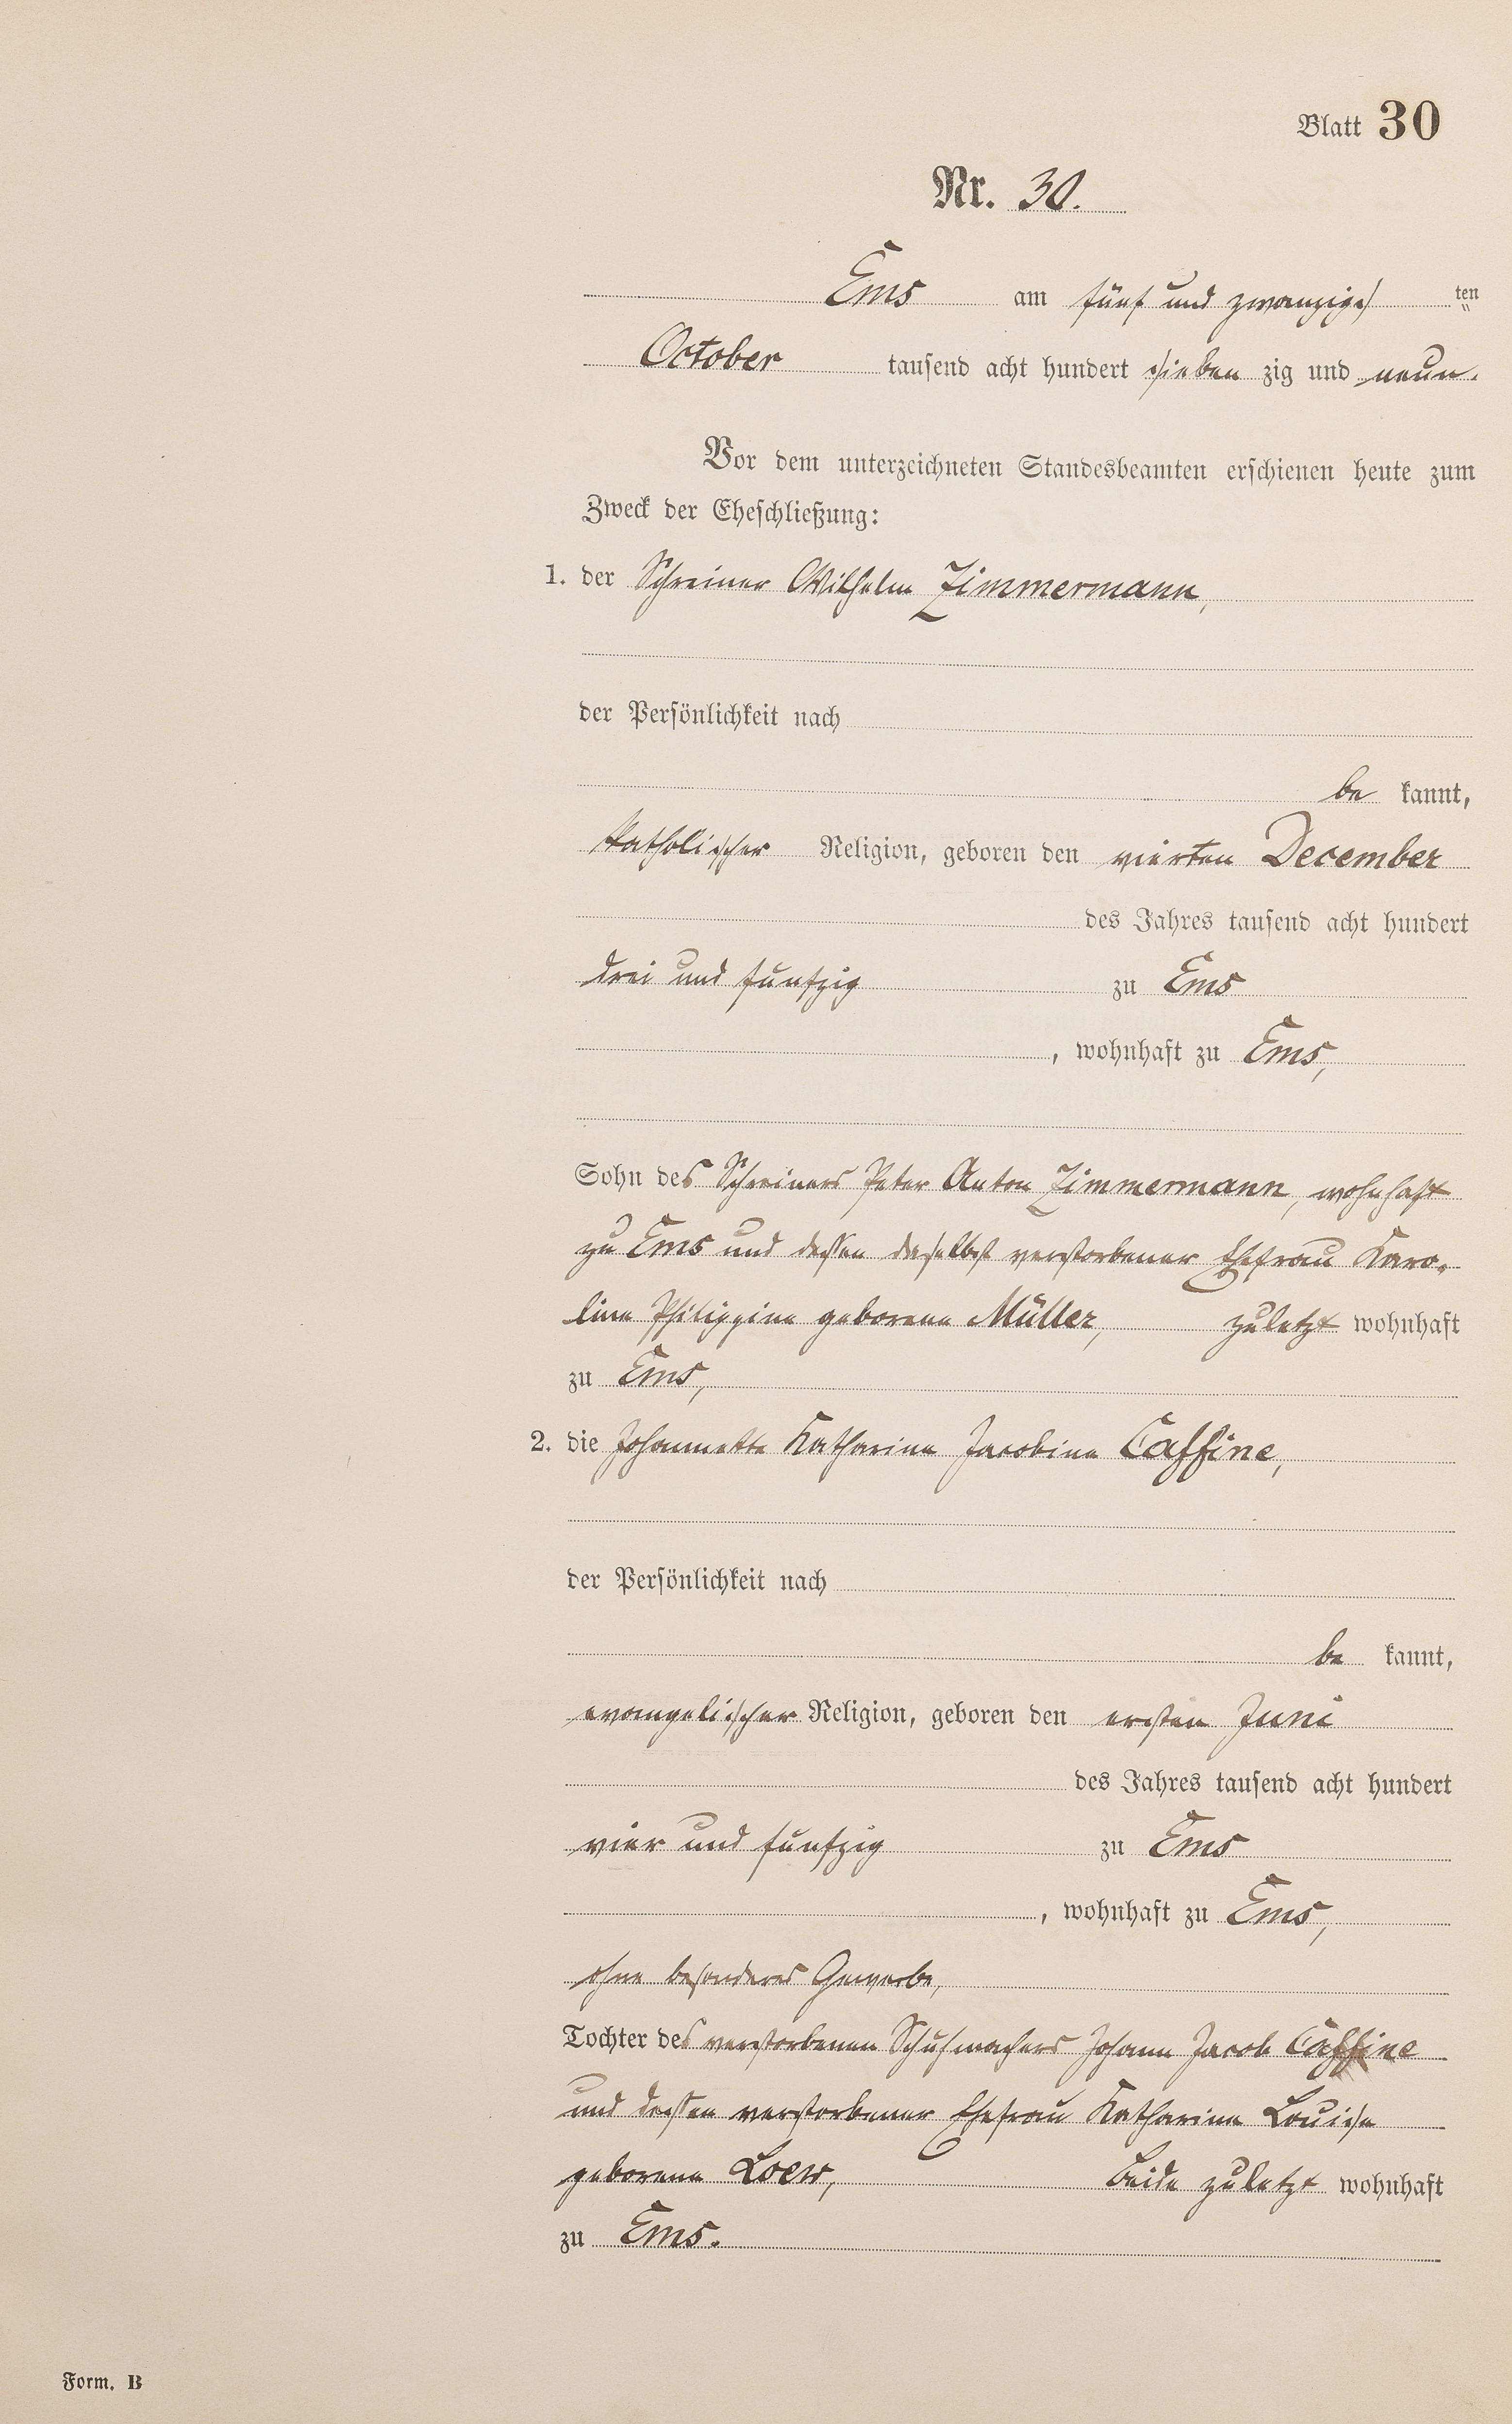 Blatt 30
Nr. 30.
Ems am fünf und zwanzigs ten
October tausend acht hundert sieben zig und neun.
Vor dem unterzeichneten Standesbeamten erschienen heute zum
Zweck der Eheschließung:
1. der Schreiner Wilhelm Zimmermann,
der Persönlichkeit nach
be kannt,
katholischer Religion, geboren den vierten December
des Jahres tausend acht hundert
drei und fünfzig zu Ems
, wohnhaft zu Ems,
Sohn des Schreiners Peter Anton Zimmermann, wohnhaft
zu Ems und dessen daselbst verstorbener Ehefrau Karo-
line Philippine geborene Müller, zuletzt wohnhaft
zu Ems,
2. die Johannette Katharine Jacobine Caffine,
der Persönlichkeit nach
be kannt,
evangelischer Religion, geboren den ersten Juni
des Jahres tausend acht hundert
vier und fünfzig zu Ems
, wohnhaft zu Ems,
ohne besonderes Gewerbe,
Tochter des verstorbenen Schuhmachers Johann Jacob Caffine
und dessen verstorbener Ehefrau Katharine Louise
geborene Loew, beide zuletzt wohnhaft
zu Ems.
Form. B